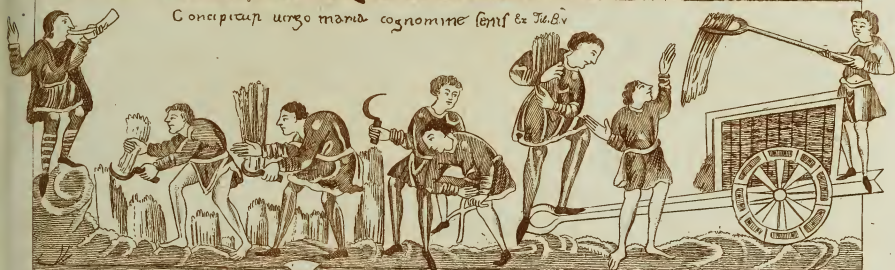 Concipitur uirgo maria cognomine senis Ex Tit. B.v